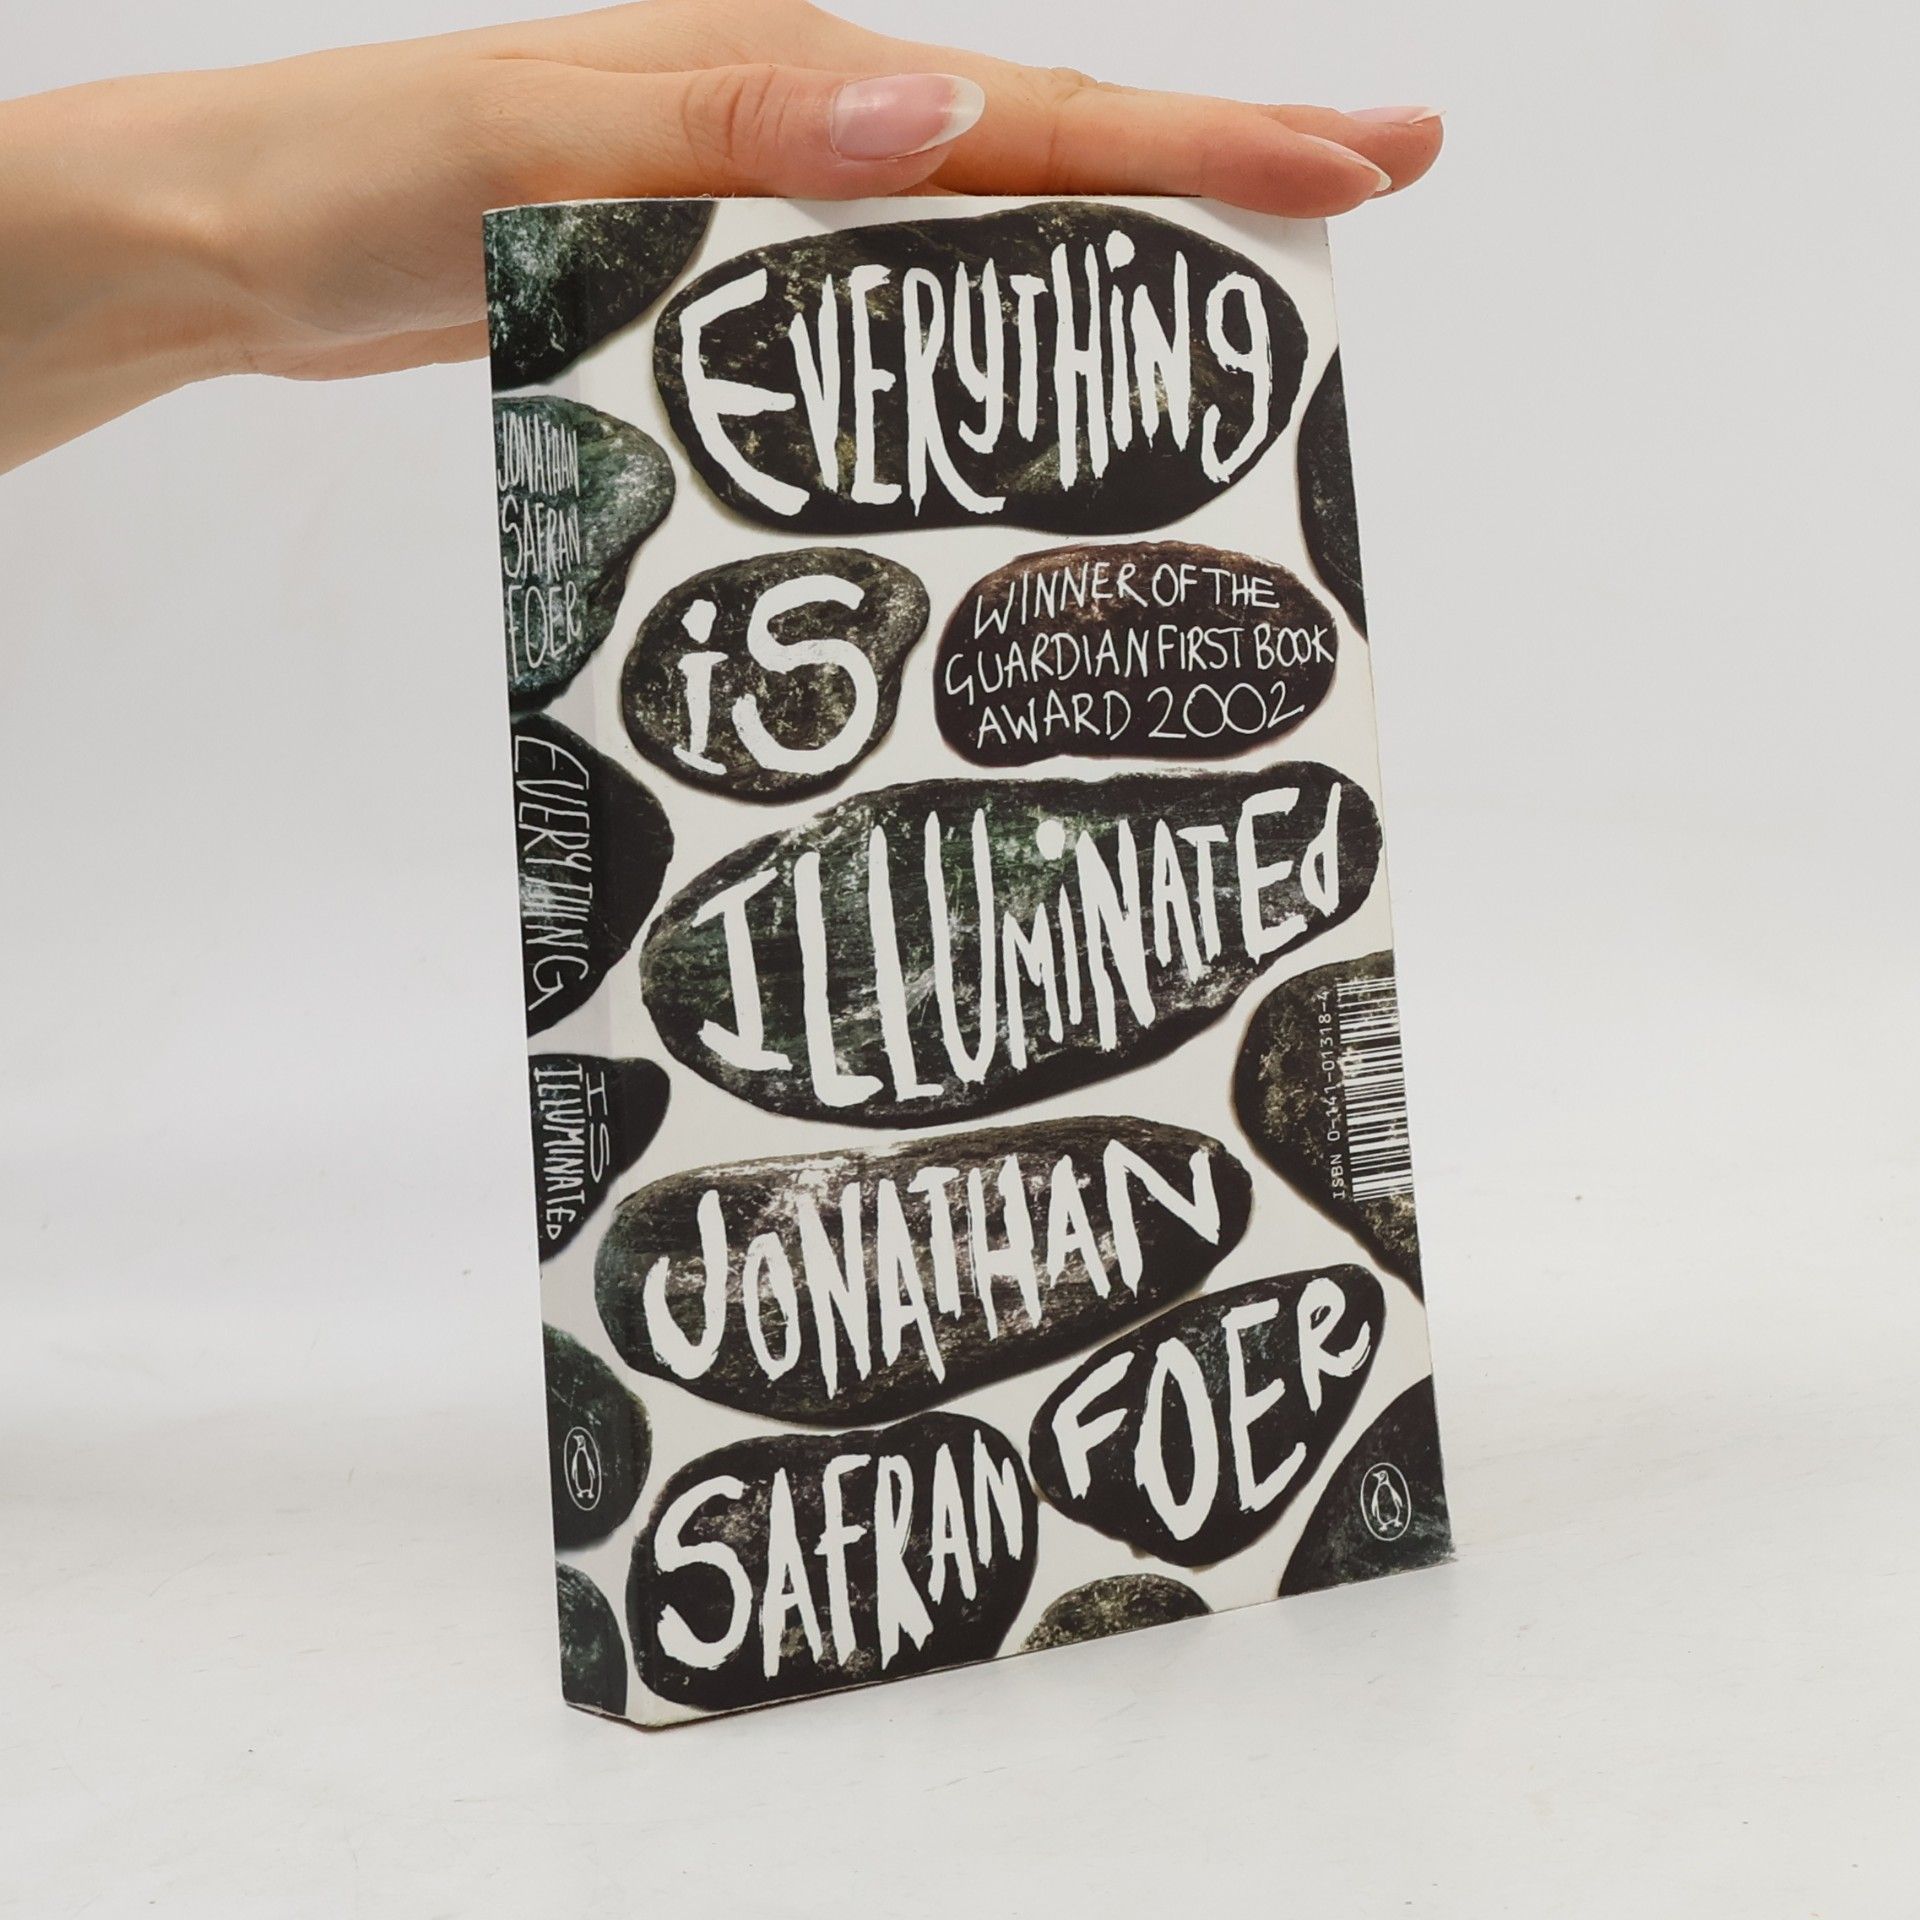 EVERYTHiNg
iS
WINNER OF THE
GUARDIAN FIRST BOOK
AWARD 2002
ILLUMiNATEd
JONATHAN
SAFRAN
FOER
ISBN 0-141-01318-4
JONATHAN
SAFRAN
FOER
EVERYTHING
IS
ILLUMINATED